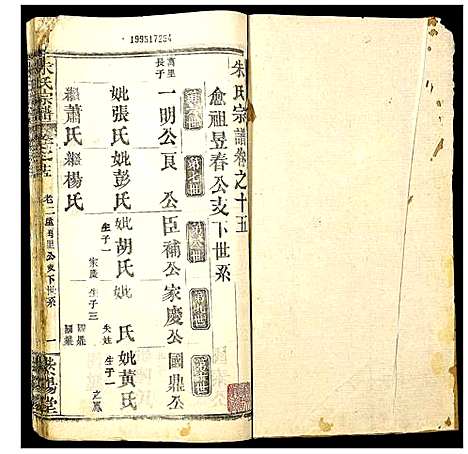 199517254
朱氏宗譜卷之十五
愈祖昱春公支下世系
萬里長子
一明公
艮公
臣補公
家慶公
國鼎公
妣張氏
妣彭氏
妣胡氏
生子一
家慶
妣氏
生子三
妣黃氏
失姓
生子一
之鳳
繼蕭氏
繼楊氏
朱氏宗譜
卷之十五
公支下世系
一
堂